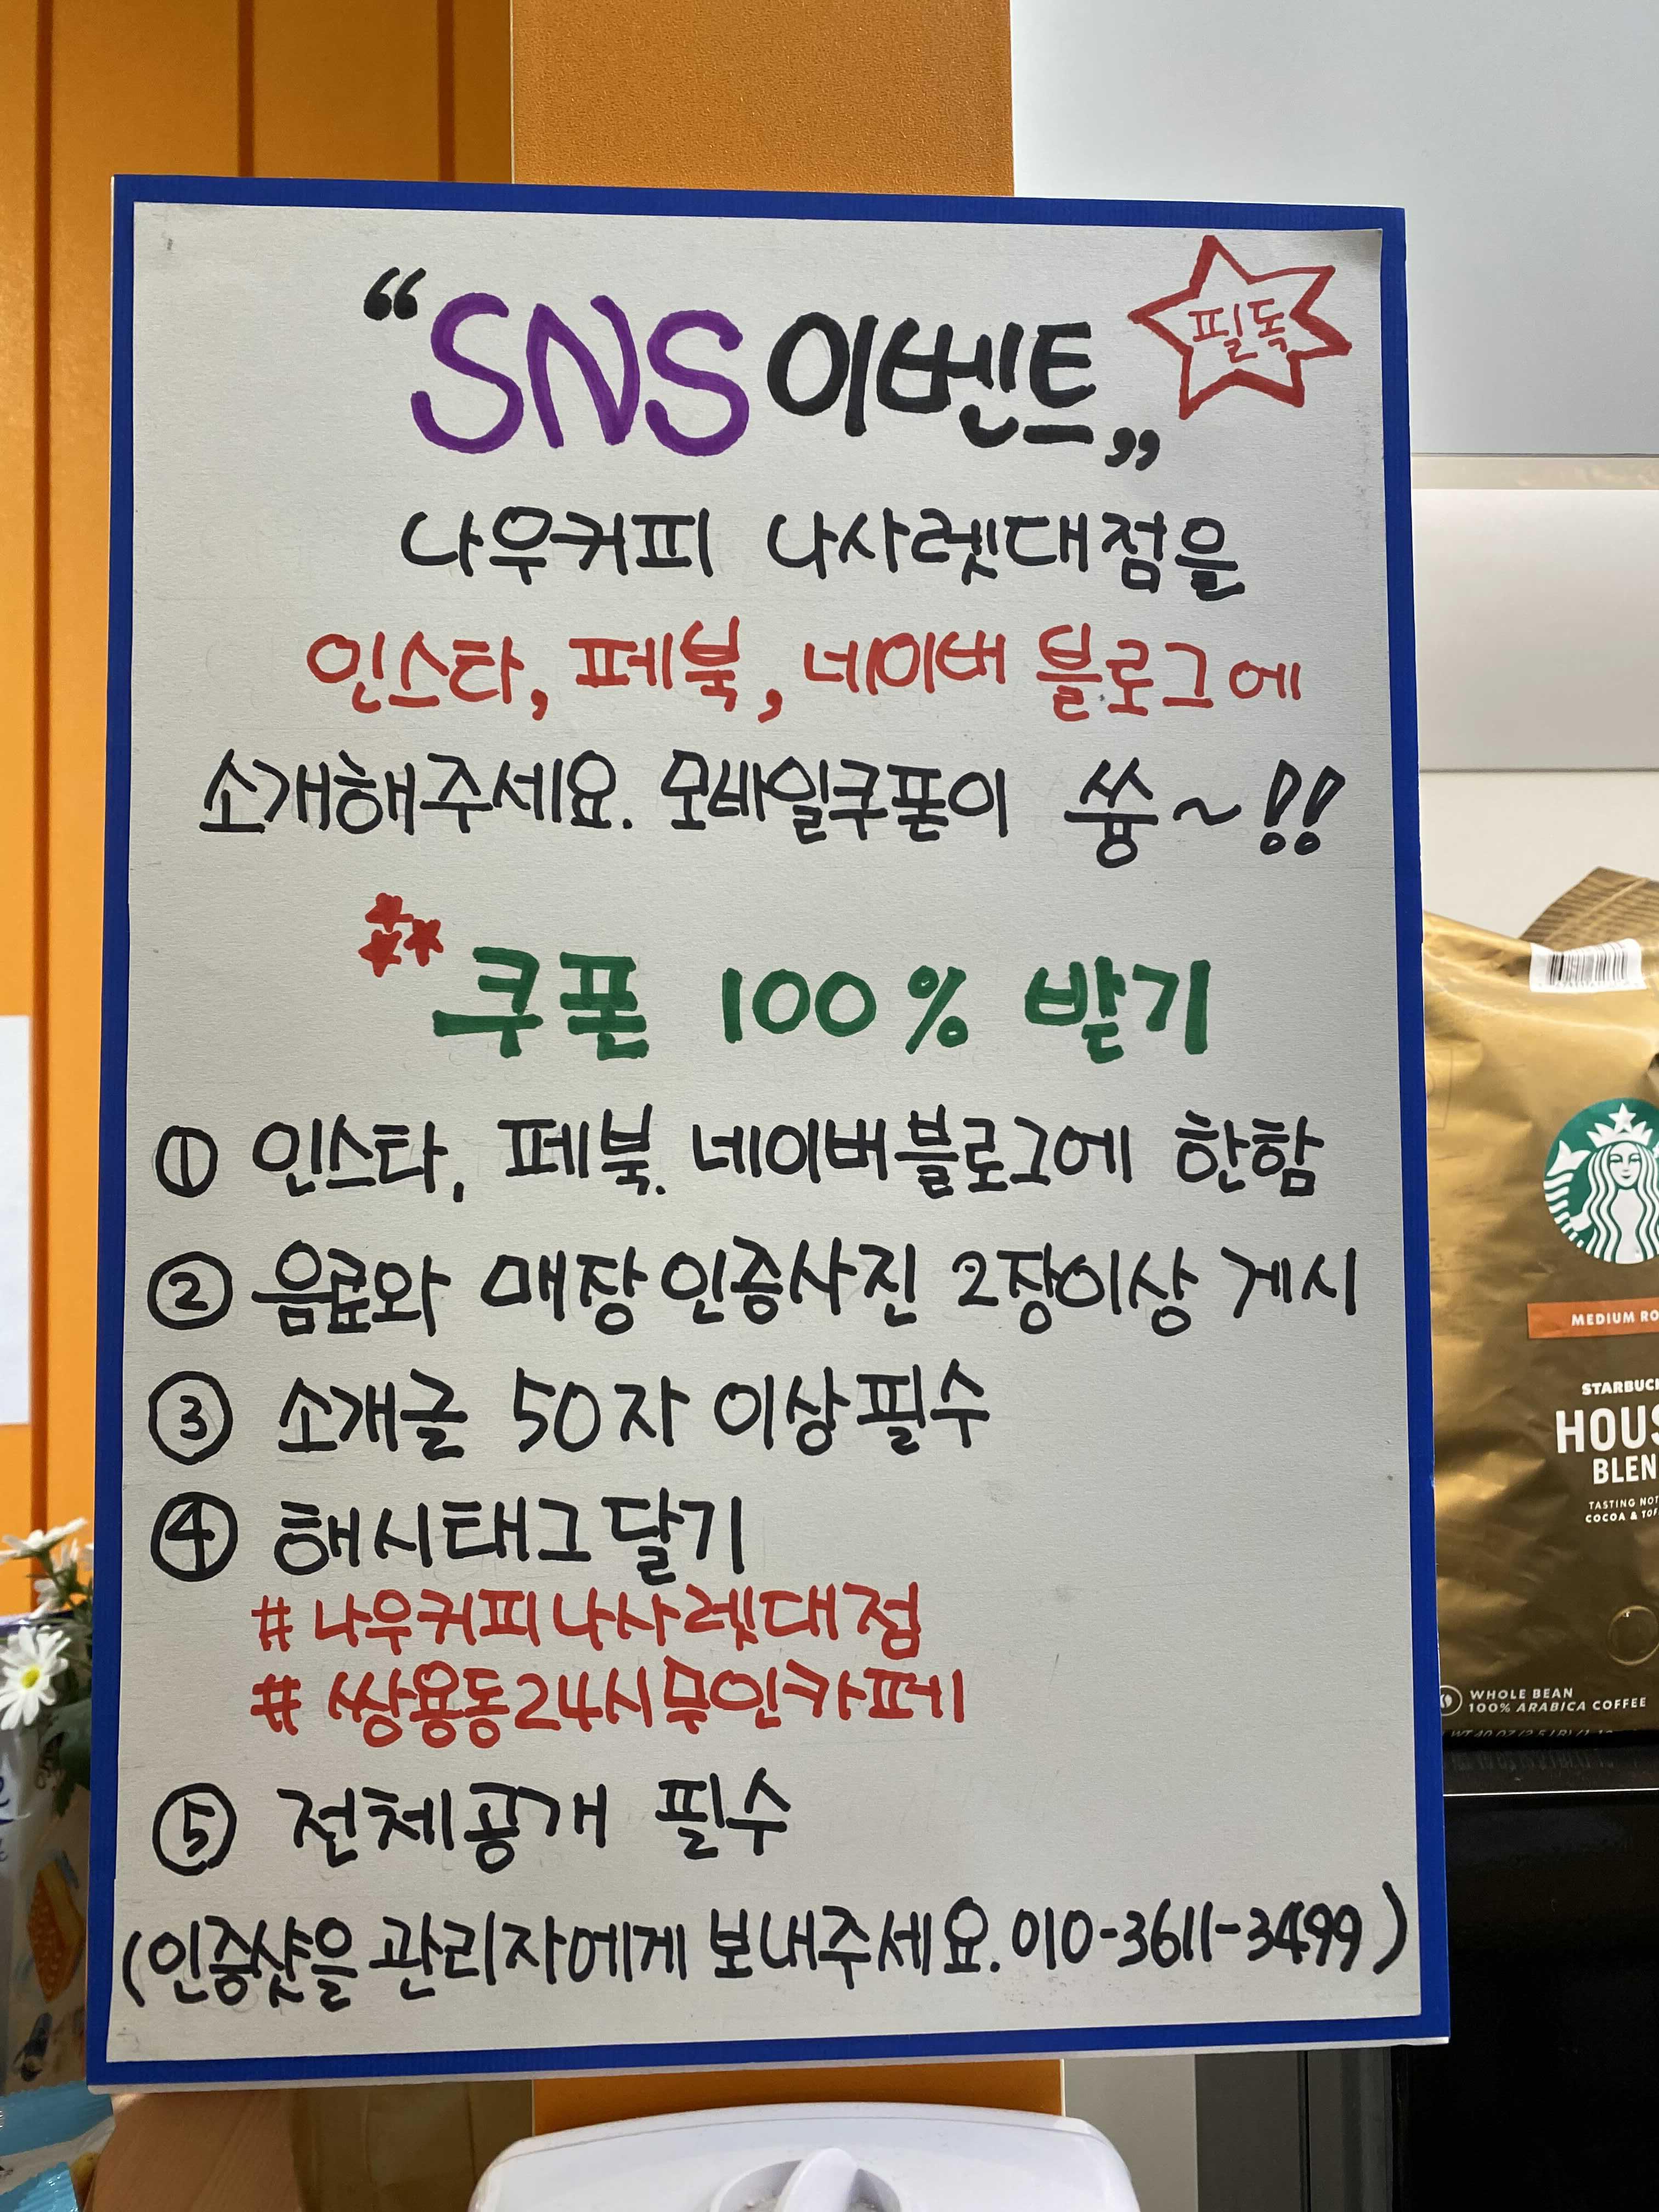 “SNS 이벤트„
필독
나우커피 나사렛대점을
인스타, 페북, 네이버 블로그에
소개해주세요. 모바일쿠폰이 쓩~!!
쿠폰 100% 받기
① 인스타, 페북. 네이버블로그에 한함
② 음료와 매장인증사진 2장이상 게시
③ 소개글 50자 이상필수
④ 해시태그달기
#나우커피나사렛대점
#쌍용동24시무인카페
⑤ 전체공개 필수
(인증샷을 관리자에게 보내주세요. 010-3611-3499)
MEDIUM RO
STARBUC
HOUS
BLEN
TASTING NOT
COCOA & TOF
WHOLE BEAN
100% ARABICA COFFEE